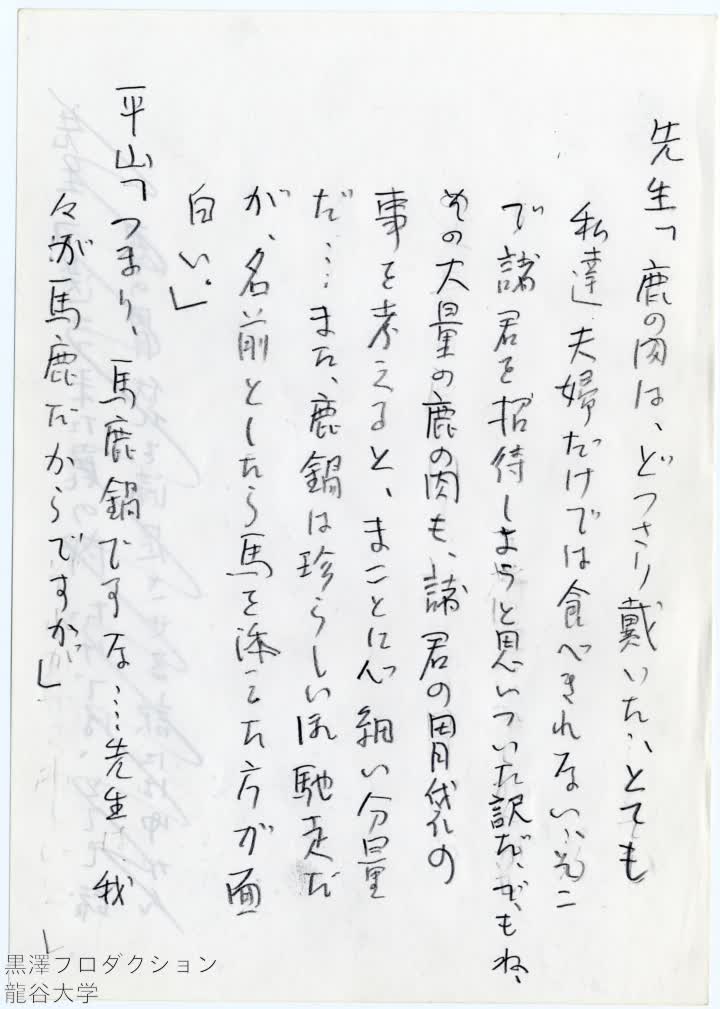 先生「鹿の肉は、どつさり戴いた…とても
私達夫婦だけでは食べきれない…そこ
で諸君を招待しようと思いついた訳だ、でもね、
その大量の鹿の肉も、諸君の胃袋の
事を考えると、まことに心細い分量
だ…また、鹿鍋は珍らしい御馳走だ
が、名前としたら馬を添えた方が面
白い。」
平山「つまり、馬鹿鍋ですな…先生は、我
々が馬鹿だからですか」
黒澤プロダクション
龍谷大学